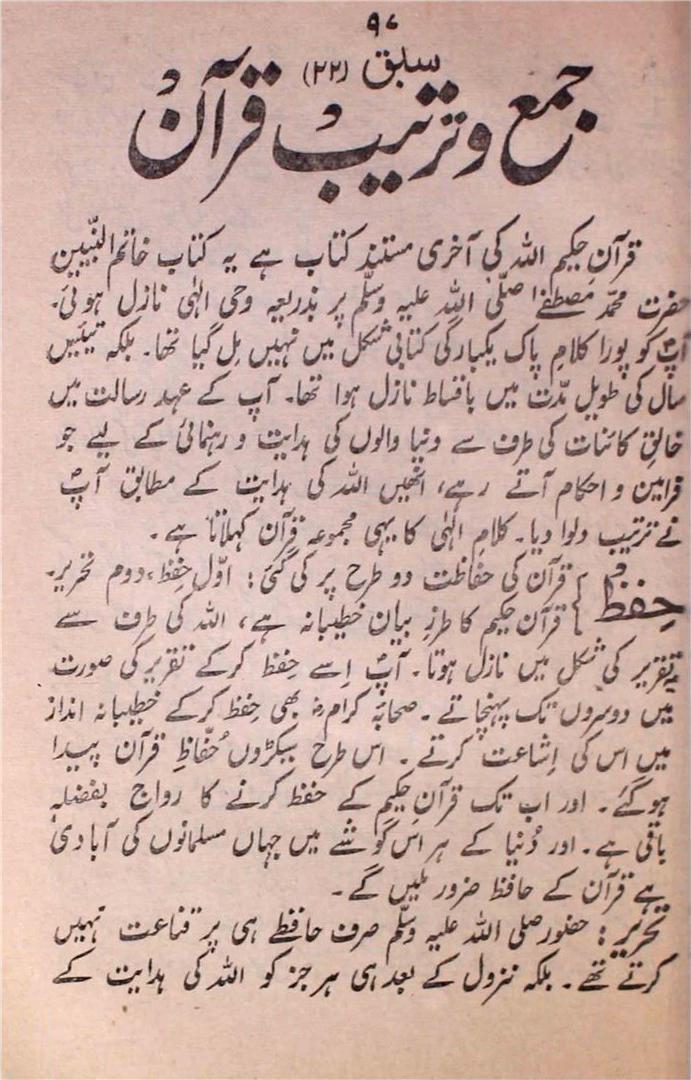 ۹۷
سبق (۲۲)
جمع و ترتیبِ قرآن
قرآنِ حکیم اللہ کی آخری مستند کتاب ہے یہ کتاب خاتم النبّیین
حضرت محمّد مصطفےٰ صلّی اللہ علیہ وسلّم پر بذریعہ وحی الہٰی نازل ہوئی۔
آپؐ کو پورا کلامِ پاک یکبارگی کتابی شکل میں نہیں مل گیا تھا۔ بلکہ تیئیس
سال کی طویل مدّت میں باقساط نازل ہوا تھا۔ آپ کے عہدِ رسالت میں
خالقِ کائنات کی طرف سے دنیا والوں کی ہدایت و رہنمائی کے لیے جو
فرامین و احکام آتے رہے، انھیں اللہ کی ہدایت کے مطابق آپؐ
نے ترتیب دلوا دیا۔ کلامِ الہٰی کا یہی مجموعہ قرآن کہلاتا ہے۔
حِفظ } قرآن کی حفاظت دو طرح پر کی گئی: اوّل حِفظ، دوم تحریر۔
قرآنِ حکیم کا طرزِ بیان خطیبانہ ہے، اللہ کی طرف سے
یہ تقریر کی شکل میں نازل ہوتا۔ آپؐ اِسے حِفظ کرکے تقریر کی صورت
میں دوسروں تک پہنچاتے۔ صحابۂ کرامؓ بھی حِفظ کرکے خطیبانہ انداز
میں اس کی اِشاعت کرتے۔ اس طرح سیکڑوں حُفّاظِ قرآن پیدا
ہوگئے۔ اور اب تک قرآنِ حکیم کے حفظ کرنے کا رواج بفضلہٖ
باقی ہے۔ اور دُنیا کے ہر اس گوشے میں جہاں مسلمانوں کی آبادی
ہے قرآن کے حافظ ضرور ملیں گے۔
تحریر: حضور صلی اللہ علیہ وسلّم صرف حافظے ہی پر قناعت نہیں
کرتے تھے۔ بلکہ نزول کے بعد ہی ہر جز کو اللہ کی ہدایت کے